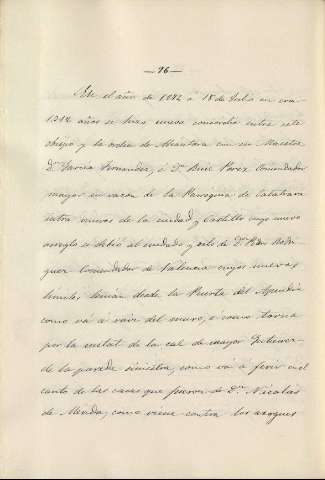 —76—
En el año de 1282 á 18 de Julio en era
1312 años se hizo nuevo concordia entre este
obispo y la orden de Alcantara con su Maestre
Dn. Garcia Fernandez, é Dn. Ruiz Perez Comendador
mayor en razon de la Parroquia de Calatrava
intra muros de la ciudad y Castillo cuyo nuevo
arreglo se debió al cuidado y celo de Dn. Pedro Rodri-
guez Comendador de Valencia cuyos nuevos
limites tenian desde la Puerta del
como vá á raiz del muro, é como torna
por la mitat de la cal de mayor Gutierrez
de la parede siniestra, como vá á ferir en el
canto de las casas que fueron de Dn. Nicolas
de Merida, como viene contra los azogues